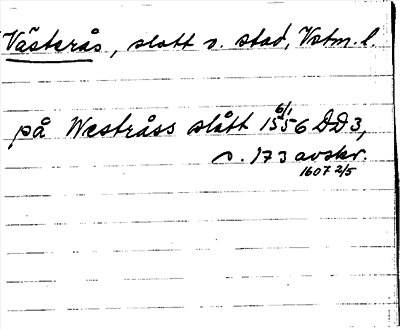 Västerås, slott o. stad, Vstm. l.
på Westråss slått 1556 6/1 DD3,
s. 173 avskr.
1607 2/5